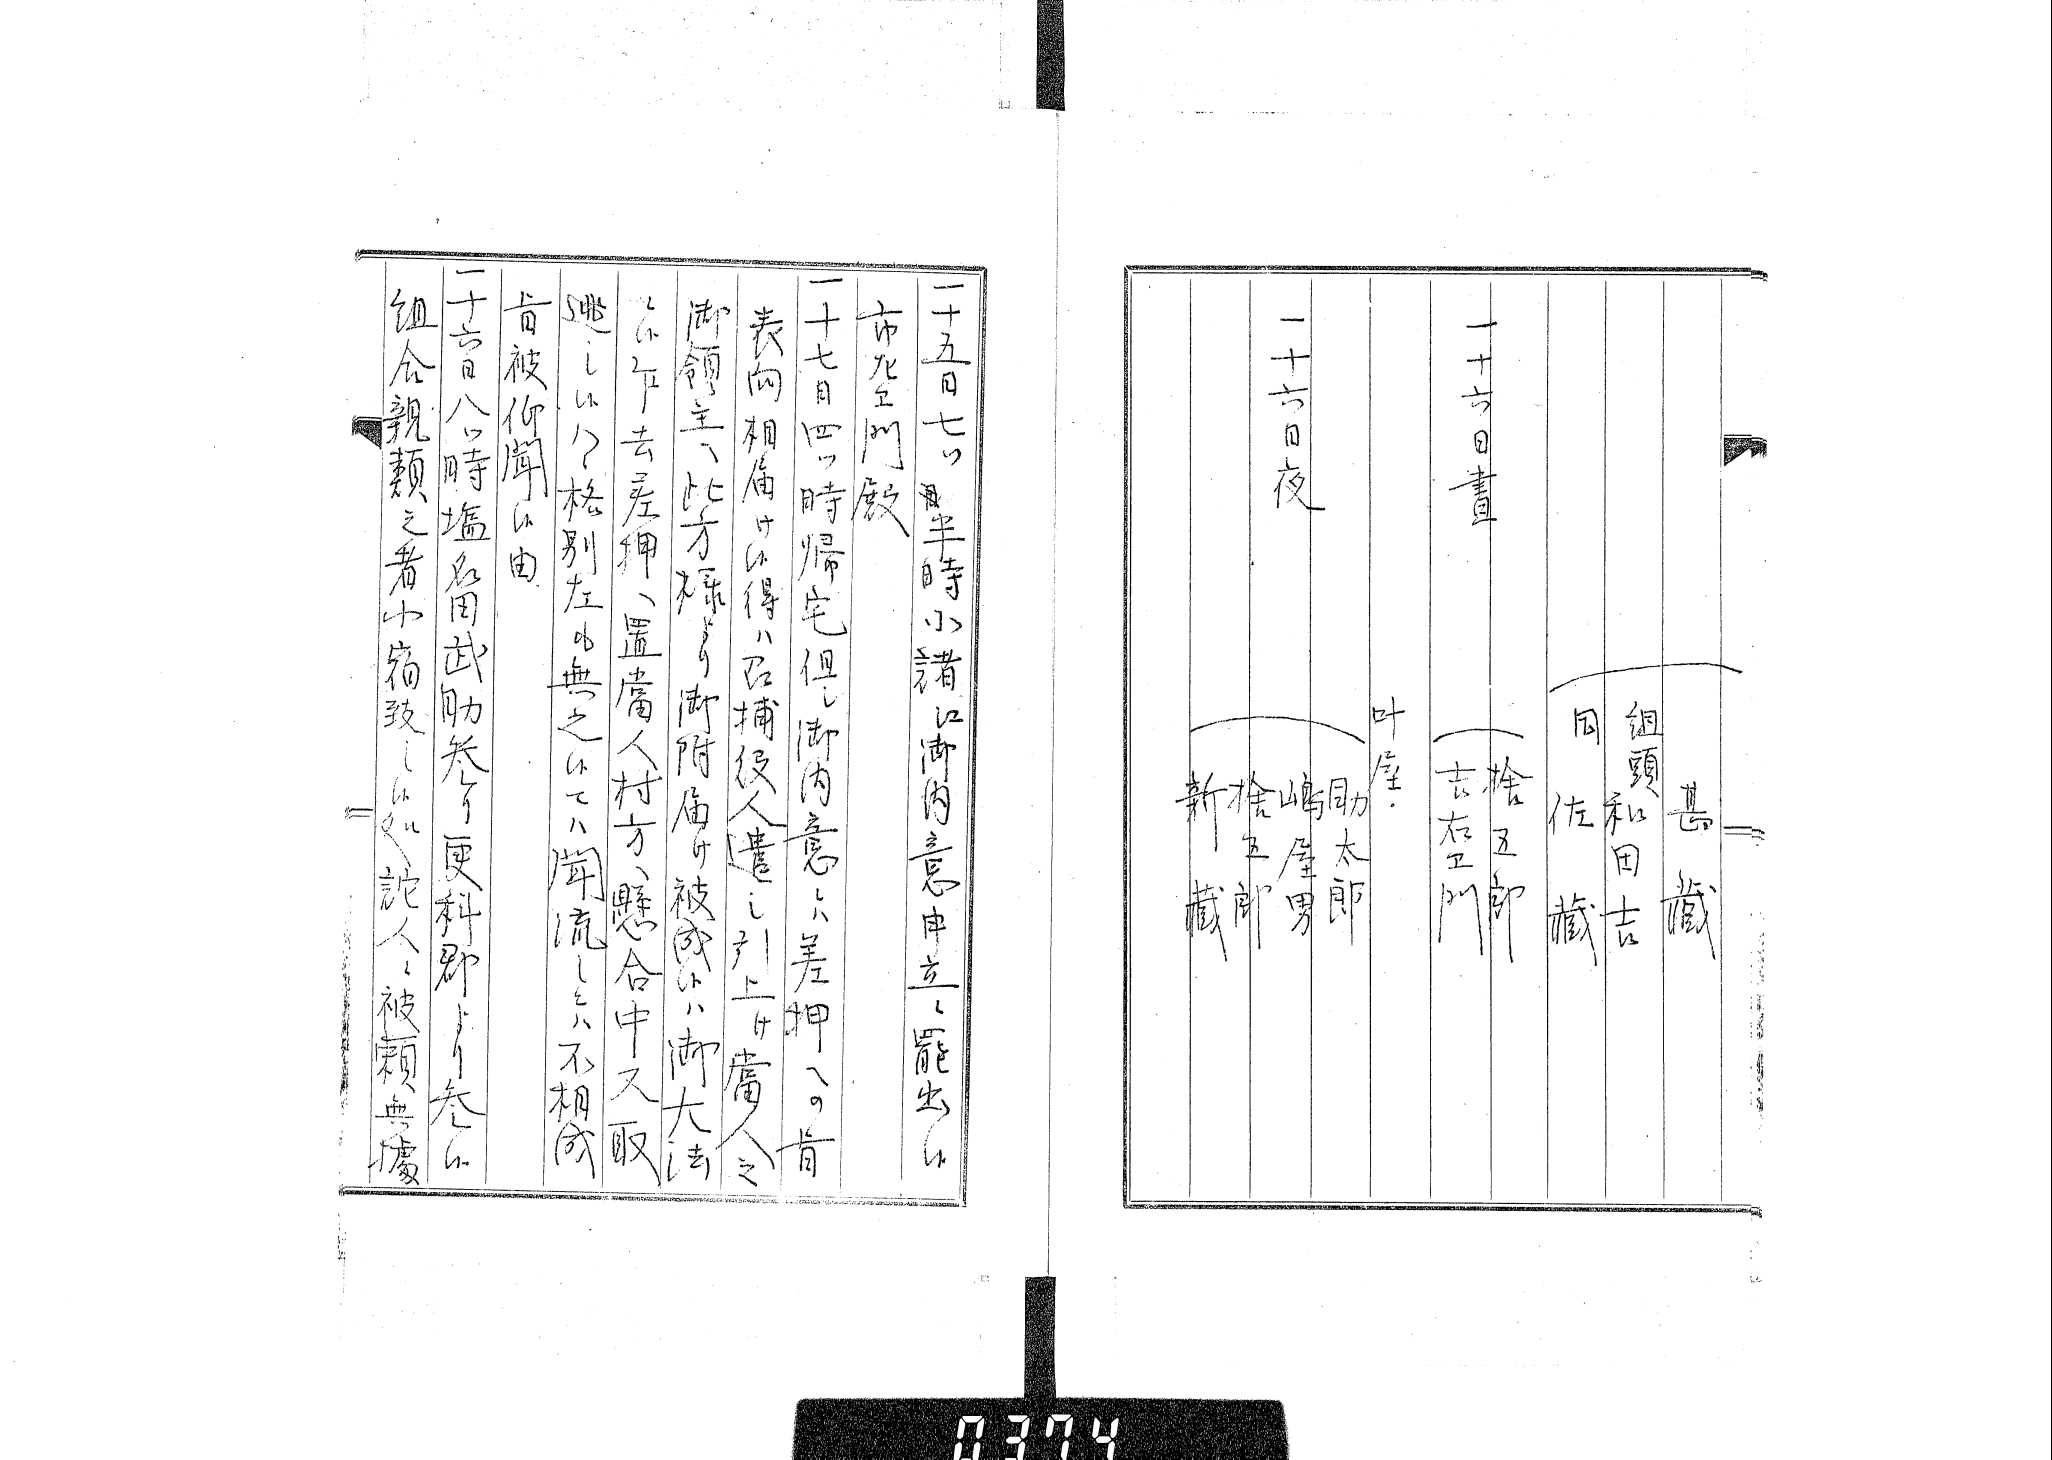 甚藏
組頭 和田吉
同 佐藏
一十六日晝
捨五郎
吉右衛門
叶屋
助太郎
一十六日夜
嶋屋男
捨五郎
新藏
一十五日七ツ半時小諸江御内意申立ニ罷出候
市左衛門殿
一十七日四ツ時帰宅但し御内意ニハ差押への旨
表向相届け候得ハ召捕役人遣し引上け當人之
御領主へ此方様より御附届け被成候ハ御大法
ニ候乍去差押へ置當人村方へ懸合中又取
逃し候ハヽ格別左も無之候てハ聞流しニハ不相成
旨被仰聞候由
一十六日八ツ時塩名田武助参り更科郡より参候
組合親類之者小宿致し候処詫人ニ被頼無據
0374